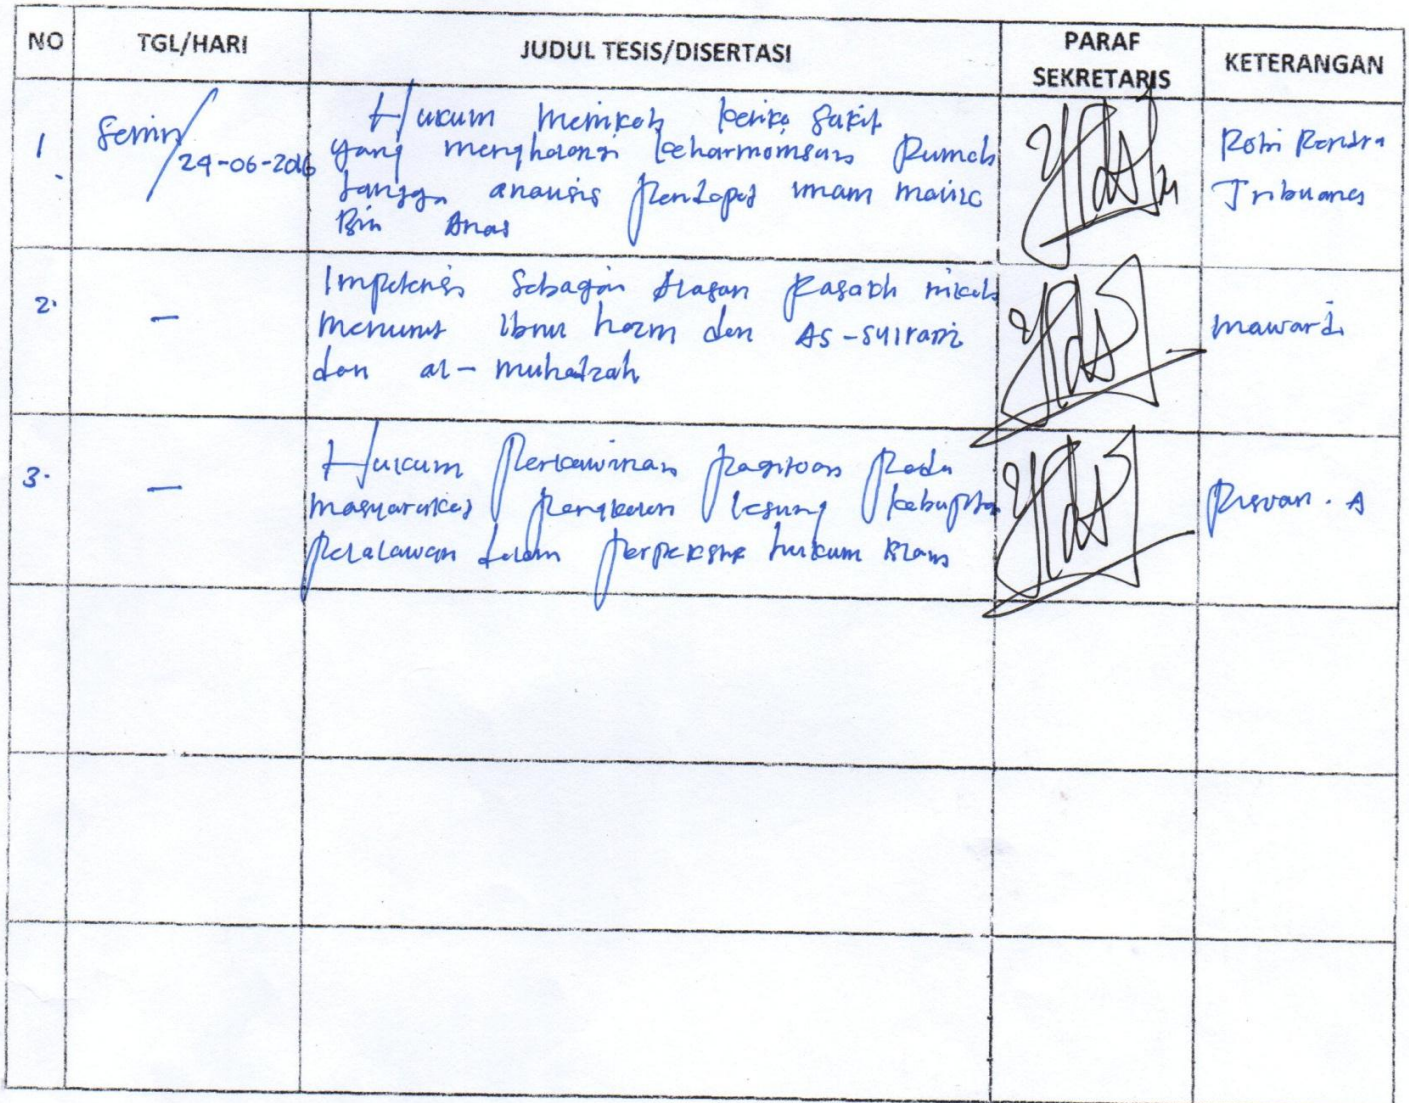 NO TGL/HARI JUDUL TESIS/DISERTASI PARAF SEKRETARIS KETERANGAN
1 Senin/ 24-06-2016
Hukum menikah ketika sakit
yang menghalangi keharmonisan Rumah
tangga analisis pendapat imam malik
Bin Anas
Robi Rendra
Tribuana
2. —
Impotensi Sebagai Alasan Fasakh nikah
menurut Ibnu hazm dan As-syirazi
dan al-muhadzab
mawardi
3. —
Hukum Perkawinan Pada
masyarakat Pangkalan Lesung
pelalawan dalam hukum Islam
. A